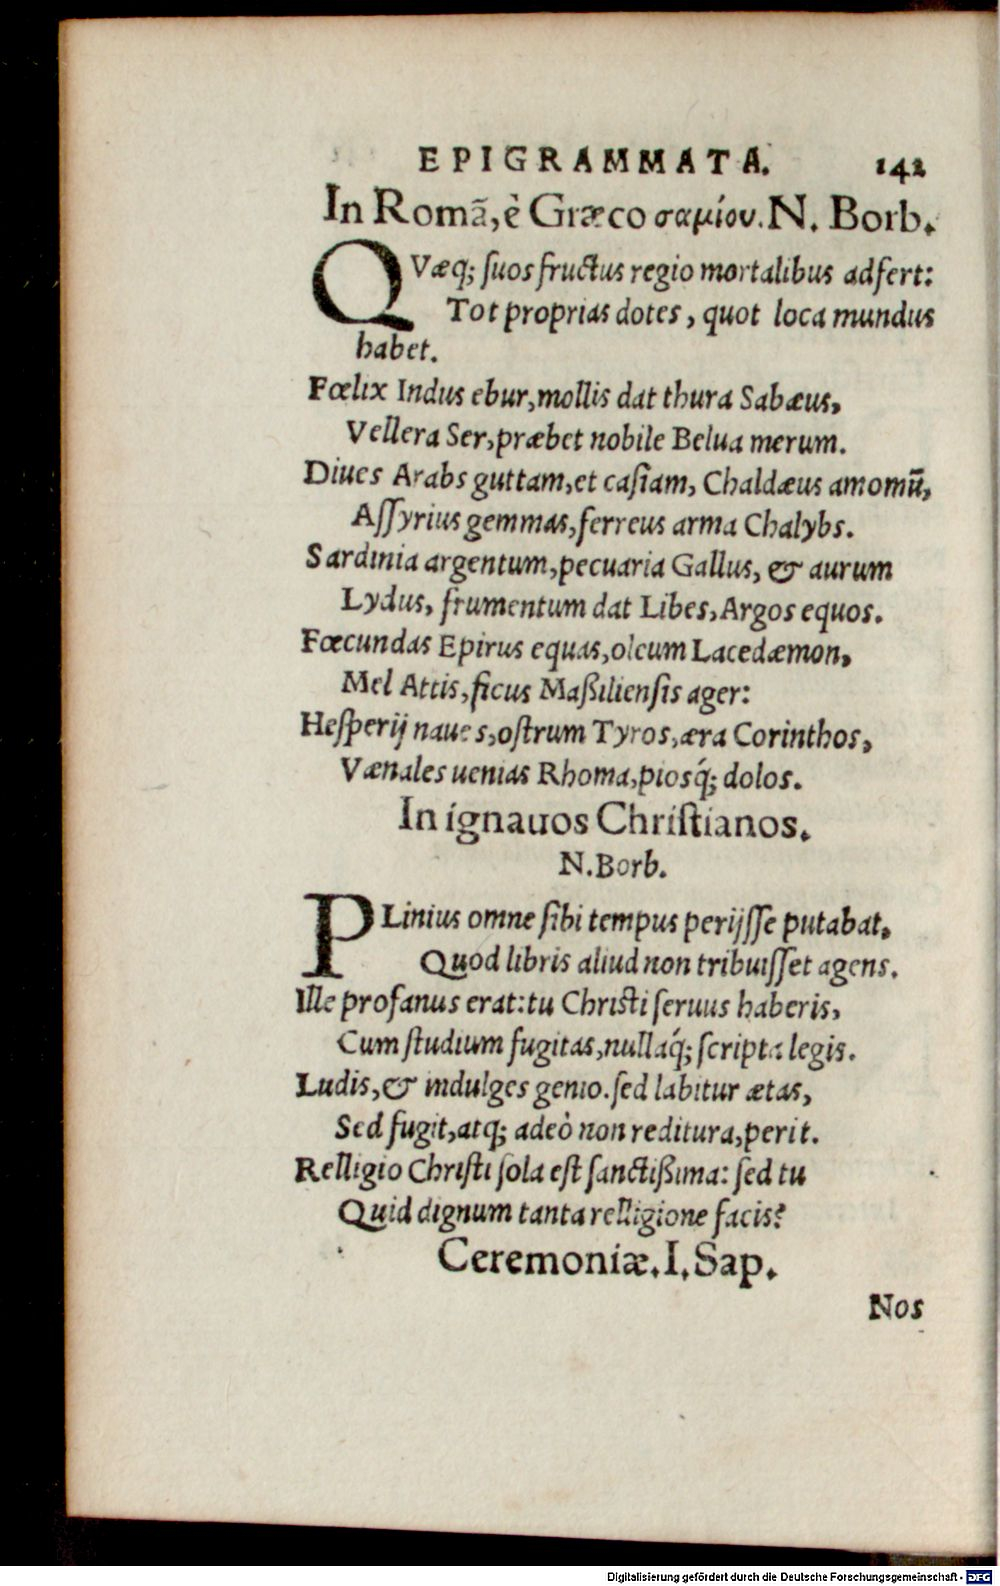 EPIGRAMMATA. 142
In Romā, è Græco σαμίου. N. Borb.
QVæq; ſuos fructus regio mortalibus adfert:
Tot proprias dotes, quot loca mundus
habet.
Fœlix Indus ebur, mollis dat thura Sabæus,
Vellera Ser, præbet nobile Belua merum.
Diues Arabs guttam, et caſiam, Chaldæus amomū,
Aſſyrius gemmas, ferreus arma Chalybs.
Sardinia argentum, pecuaria Gallus, & aurum
Lydus, frumentum dat Libes, Argos equos.
Fœcundas Epirus equas, oleum Lacedæmon,
Mel Attis, ficus Maßilienſis ager:
Heſperij naues, oſtrum Tyros, æra Corinthos,
Vænales uenias Rhoma, piosq́; dolos.
In ignauos Chriſtianos.
N. Borb.
PLinius omne ſibi tempus perijſſe putabat,
Quod libris aliud non tribuiſſet agens.
Ille profanus erat: tu Chriſti ſeruus haberis,
Cum ſtudium fugitas, nullaq́; ſcripta legis.
Ludis, & indulges genio. ſed labitur ætas,
Sed fugit, atq; adeò non reditura, perit.
Relligio Chriſti ſola eſt ſanctißima: ſed tu
Quid dignum tanta relligione facis?
Ceremoniæ. I. Sap.
Nos
Digitalisierung gefördert durch die Deutsche Forschungsgemeinschaft - DFG